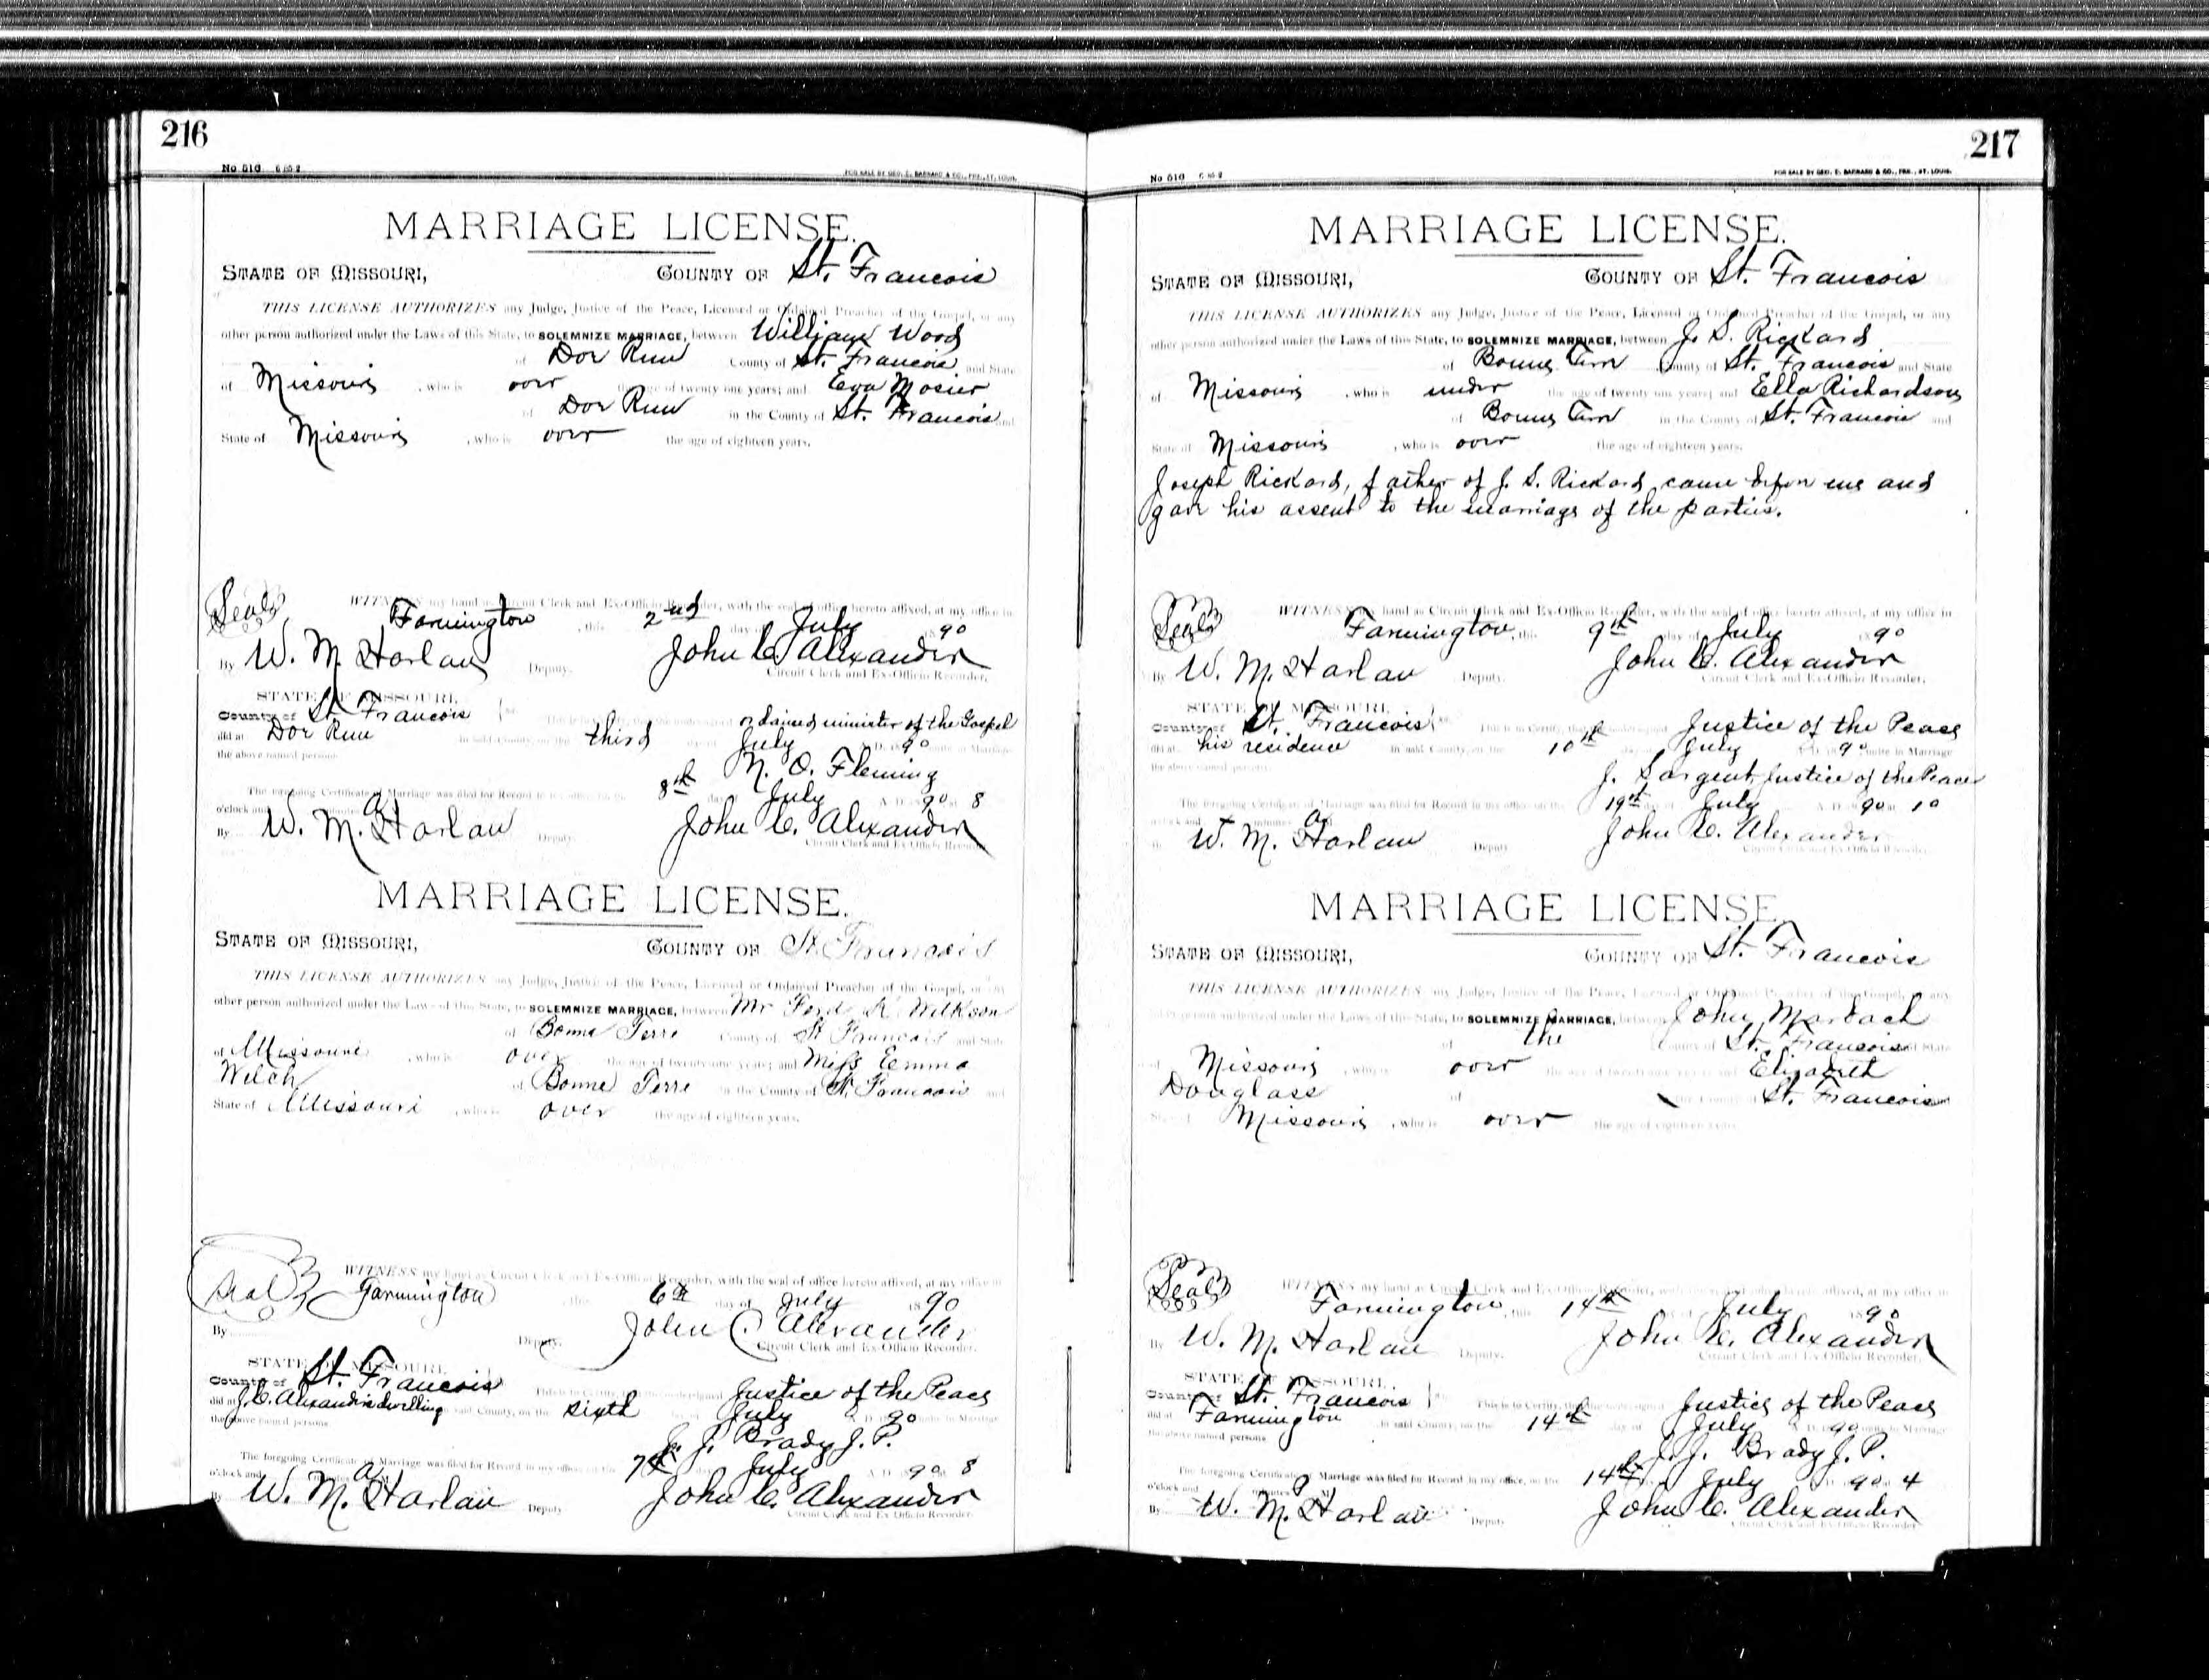 216
No 516 6 85 2
FOR SALE BY GEO. D. BARNARD & CO., PRS., ST. LOUIS.
MARRIAGE LICENSE.
STATE OF MISSOURI, COUNTY OF St. Francois
THIS LICENSE AUTHORIZES any Judge, Justice of the Peace, Licensed or Ordained Preacher of the Gospel, or any
other person authorized under the Laws of this State, to SOLEMNIZE MARRIAGE, between William Wood
of Doe Run County of St. Francois and State
of Missouri, who is over the age of twenty one years; and Eva Mosier
of Doe Run in the County of St. Francois and
State of Missouri, who is over the age of eighteen years.
Seal WITNESS my hand as Circuit Clerk and Ex-Officio Recorder, with the seal of office hereto affixed, at my office in
Farmington, this 2nd day of July 1890
By W. M. Harlan Deputy. John C. Alexander
Circuit Clerk and Ex-Officio Recorder.
STATE OF MISSOURI,
County of St. Francois ordained minister of the Gospel
did at Doe Run in said County, on the third day of July A. D. 1890 unite in Marriage
the above named persons.
N. O. Fleming
The foregoing Certificate of Marriage was filed for Record in my office on the 8th day of July A. D. 1890 at 8
o'clock and minutes A
By W. M. Harlan Deputy John C. Alexander
Circuit Clerk and Ex-Officio Recorder
MARRIAGE LICENSE.
STATE OF MISSOURI, COUNTY OF St. Francois
THIS LICENSE AUTHORIZES any Judge, Justice of the Peace, Licensed or Ordained Preacher of the Gospel, or any
other person authorized under the Laws of this State, to SOLEMNIZE MARRIAGE, between Mr Ferd Wilkson
of Bonne Terre County of St Francois and State
of Missouri, who is over the age of twenty one years; and Miss Emma
Welch of Bonne Terre in the County of St. Francois and
State of Missouri, who is over the age of eighteen years.
Seal WITNESS my hand as Circuit Clerk and Ex-Officio Recorder, with the seal of office hereto affixed, at my office in
Farmington this 6th day of July 1890
By Deputy. John C. Alexander
Circuit Clerk and Ex-Officio Recorder.
STATE OF MISSOURI,
County of St. Francois Justice of the Peace
did at J. C. Alexander's dwelling said County, on the sixth July A. D. 1890 unite in Marriage
the above named persons.
J. J. Brady J. P.
The foregoing Certificate of Marriage was filed for Record in my office on the 7th July A. D. 1890 at 8
o'clock and minutes A
By W. M. Harlan Deputy John C. Alexander
Circuit Clerk and Ex-Officio Recorder.
217
No 516 6 85 2
FOR SALE BY GEO. D. BARNARD & CO., PRS., ST. LOUIS.
MARRIAGE LICENSE.
STATE OF MISSOURI, COUNTY OF St. Francois
THIS LICENSE AUTHORIZES any Judge, Justice of the Peace, Licensed or Ordained Preacher of the Gospel, or any
other person authorized under the Laws of this State, to SOLEMNIZE MARRIAGE, between J. S. Rickard
of Bonne Terre County of St. Francois and State
of Missouri, who is under the age of twenty one years; and Ella Richardson
of Bonne Terre in the County of St. Francois and
State of Missouri, who is over the age of eighteen years.
Joseph Rickard, father of J. S. Rickard, came before me and
gave his assent to the marriage of the parties.
Seal WITNESS my hand as Circuit Clerk and Ex-Officio Recorder, with the seal of office hereto affixed, at my office in
Farmington, this 9th day of July 1890
By W. M. Harlan Deputy. John C. Alexander
Circuit Clerk and Ex-Officio Recorder.
STATE OF MISSOURI,
County of St. Francois This is to Certify, that the undersigned Justice of the Peace
did at his residence in said County, on the 10th day of July A. D. 1890 unite in Marriage
the above named persons.
J. Sargent, Justice of the Peace
The foregoing Certificate of Marriage was filed for Record in my office on the 19th day of July A. D. 1890 at 10
o'clock and minutes A
By W. M. Harlan Deputy John C. Alexander
Circuit Clerk and Ex-Officio Recorder
MARRIAGE LICENSE.
STATE OF MISSOURI, COUNTY OF St. Francois
THIS LICENSE AUTHORIZES any Judge, Justice of the Peace, Licensed or Ordained Preacher of the Gospel, or any
other person authorized under the Laws of this State, to SOLEMNIZE MARRIAGE, between John Marbach
of the County of St. Francois and State
of Missouri, who is over the age of twenty one years; and Elizabeth
Douglass of the County of St. Francois and
State of Missouri, who is over the age of eighteen years
Seal WITNESS my hand as Circuit Clerk and Ex-Officio Recorder, with the seal of office hereto affixed, at my office in
Farmington, this 14th day of July 1890
By W. M. Harlan Deputy. John C. Alexander
Circuit Clerk and Ex-Officio Recorder.
STATE OF MISSOURI,
County of St. Francois This is to Certify, that the undersigned Justice of the Peace
did at Farmington in said County, on the 14th day of July A. D. 1890 unite in Marriage
the above named persons.
J. J. Brady J. P.
The foregoing Certificate of Marriage was filed for Record in my office, on the 14th July A. D. 1890 at 4
o'clock and minutes P M
By W. M. Harlan Deputy John C. Alexander
Circuit Clerk and Ex-Officio Recorder